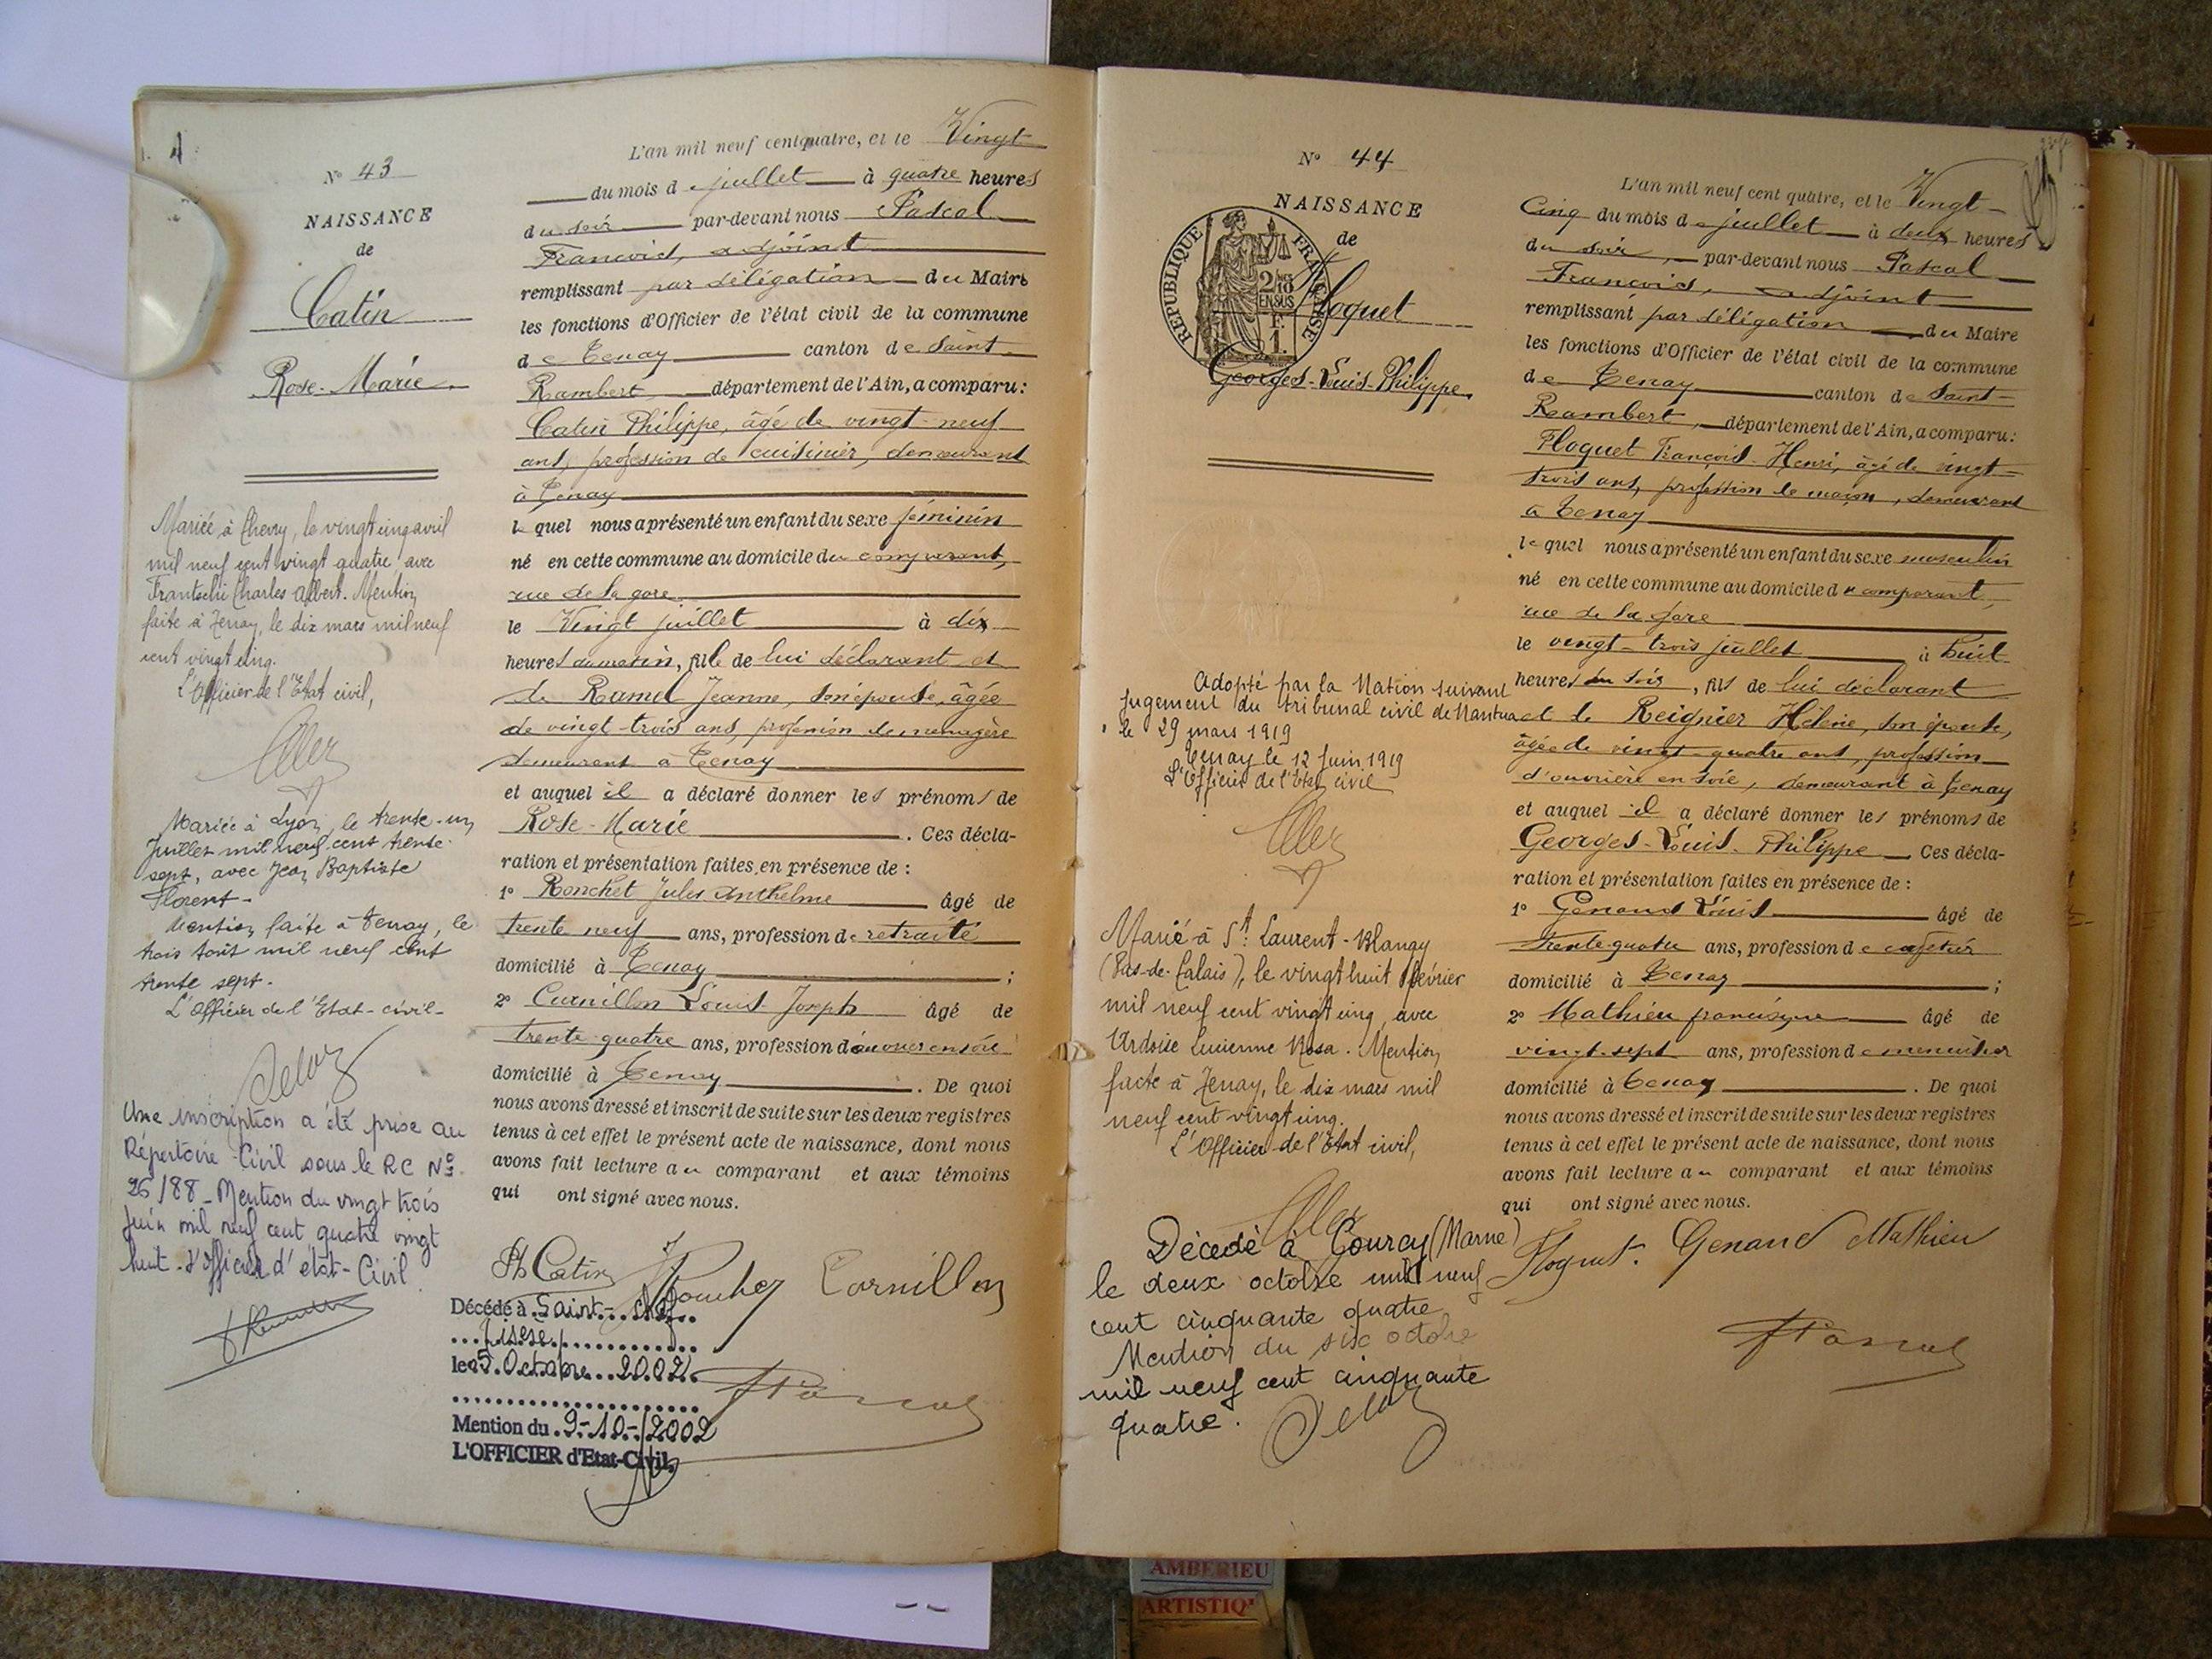 4
N° 43
NAISSANCE
de
Catin
Rose-Marie.
Mariée à Chevry, le vingt cinq avril
mil neuf cent vingt quatre, avec
Frantschi Charles Albert. Mention
faite à Tenay, le dix mars mil neuf
cent vingt cinq.
L'Officier de l'Etat civil,
Mariée à Lyon, le trente-un
Juillet mil neuf cent trente-
sept, avec Jean Baptiste
Florent-
Mention faite à Tenay, le
trois Août mil neuf cent
trente sept.
L'Officier de l'Etat-civil-
Une inscription a été prise au
Répertoire Civil sous le RC N°
26/88 - Mention du vingt trois
Juin mil neuf cent quatre vingt
huit. L'Officier d'état-Civil
L'an mil neuf cent quatre, et le Vingt
du mois de juillet à quatre heures
du soir par-devant nous Pascal
François, adjoint
remplissant par délégation du Maire
les fonctions d'Officier de l'état civil de la commune
de Tenay canton de Saint-
Rambert, département de l'Ain, a comparu:
Catin Philippe, âgé de vingt-neuf
ans, profession de cuisinier, demeurant
à Tenay
lequel nous a présenté un enfant du sexe féminin
né en cette commune au domicile du comparant,
rue de la gare
le Vingt juillet à dix
heures du matin, fille de lui déclarant et
de Ramel Jeanne, son épouse, âgée
de vingt-trois ans, profession de ménagère
demeurant à Tenay
et auquel il a déclaré donner les prénoms de
Rose-Marie. Ces décla-
ration et présentation faites en présence de :
1° Ronchet Jules Anthelme âgé de
trente neuf ans, profession de retraité
domicilié à Tenay ;
2° Cornillon Louis Joseph âgé de
trente-quatre ans, profession d'ouvrier en soie
domicilié à Tenay. De quoi
nous avons dressé et inscrit de suite sur les deux registres
tenus à cet effet le présent acte de naissance, dont nous
avons fait lecture au comparant et aux témoins
qui ont signé avec nous.
Ph Catin Ronchet Cornillon
Décédé à Saint-Chef
Isère
le 05 Octobre 2002
Mention du 9-10-2002
L'OFFICIER d'Etat-Civil,
F Pascal
N° 44
NAISSANCE
de
REPUBLIQUE FRANÇAISE
2/10
EN SUS
F.
1.
Floquet
Georges-Louis-Philippe.
Adopté par la Nation suivant
jugement du tribunal civil de Nantua
le 29 mars 1919
Tenay le 12 Juin 1919
L'Officier de l'Etat civil
Marié à St Laurent-Blangy
(Pas-de-Calais), le vingt huit février
mil neuf cent vingt cinq avec
Ardoise Lucienne Rosa. Mention
faite à Tenay, le dix mars mil
neuf cent vingt cinq.
L'Officier de l'Etat civil,
Décédé à Courcy (Marne)
le deux octobre mil neuf
cent cinquante quatre
Mention du six octobre
mil neuf cent cinquante
quatre.
L'an mil neuf cent quatre, et le Vingt-
Cinq du mois de juillet à deux heures
du soir, par-devant nous Pascal
François, adjoint
remplissant par délégation du Maire
les fonctions d'Officier de l'état civil de la commune
de Tenay canton de Saint-
Rambert, département de l'Ain, a comparu:
Floquet François-Henri, âgé de vingt-
trois ans, profession de maçon, demeurant
à Tenay
lequel nous a présenté un enfant du sexe masculin
né en cette commune au domicile du comparant,
rue de la gare
le vingt-trois juillet à huit
heures du soir, fils de lui déclarant
et de Reignier Hélène, son épouse,
âgée de vingt-quatre ans, profession
d'ouvrière en soie, demeurant à Tenay
et auquel il a déclaré donner les prénoms de
Georges-Louis-Philippe Ces décla-
ration et présentation faites en présence de :
1° Genand Louis âgé de
trente-quatre ans, profession de cafetier
domicilié à Tenay ;
2° Mathieu francisque âgé de
vingt-sept ans, profession de menuisier
domicilié à Tenay. De quoi
nous avons dressé et inscrit de suite sur les deux registres
tenus à cet effet le présent acte de naissance, dont nous
avons fait lecture au comparant et aux témoins
qui ont signé avec nous.
Floquet. Genand Mathieu
F Pascal
AMBERIEU
ARTISTIQ